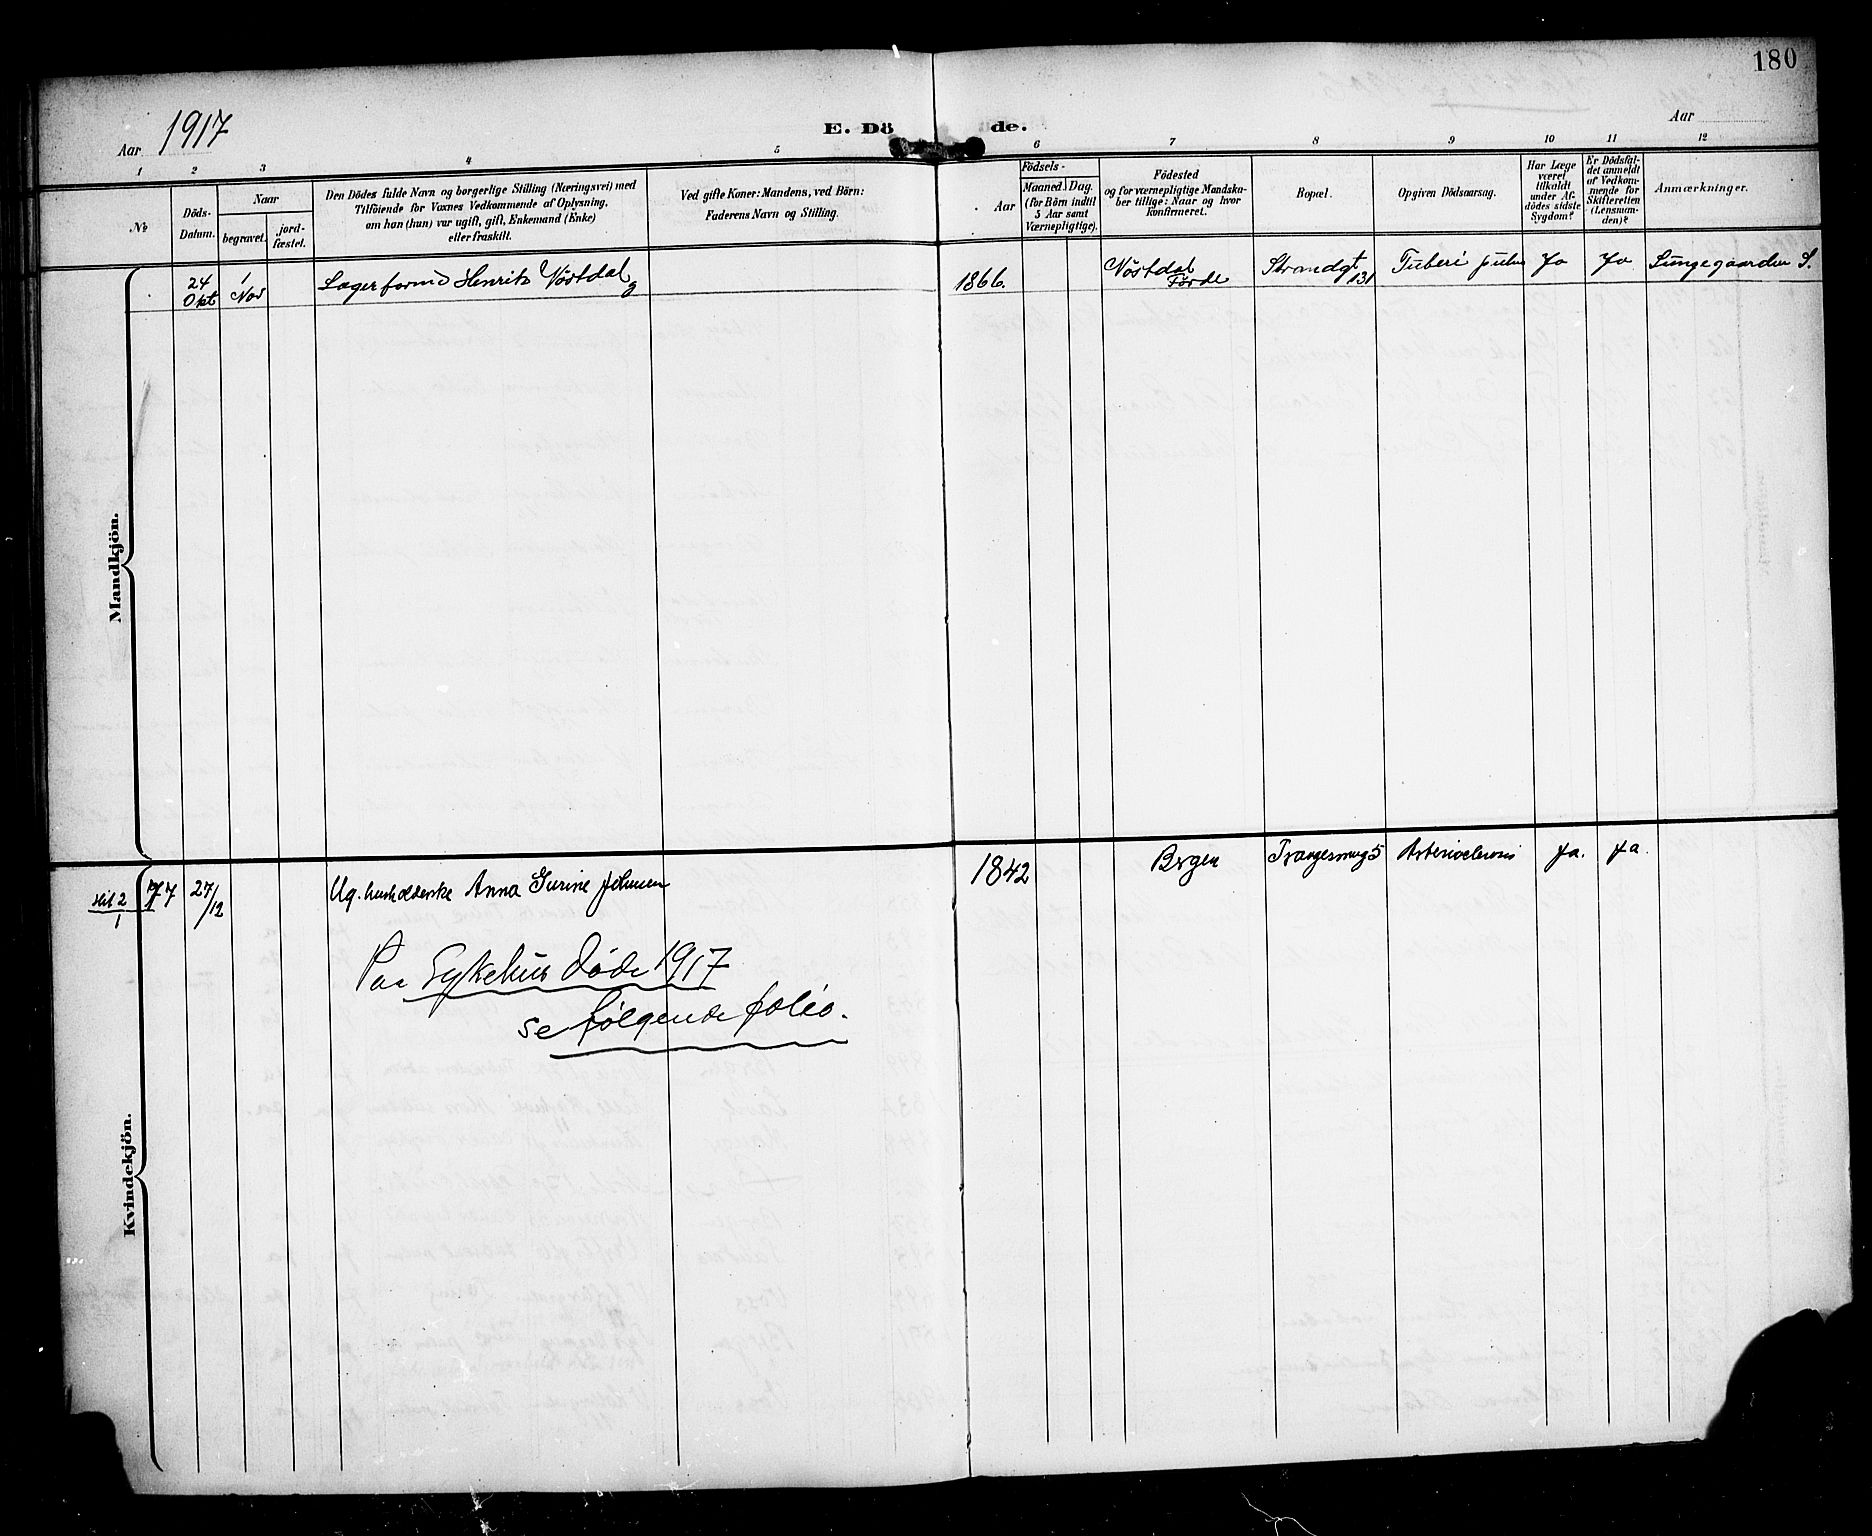 180
Aar 1917
E. Dö de.
Aar
1 2 3 4 5 6 7 8 9 10 11 12
№
Döds-Datum.
Naar
begravet.
jord-fæstet.
Den Dödes fulde Navn og borgerlige Stilling (Næringsvei) med
Tilföiende for Voxnes Vedkommende af Oplysning,
om han (hun) var ugift, gift, Enkemand (Enke)
eller fraskilt.
Ved gifte Koner: Mandens, ved Börn:
Faderens Navn og Stilling.
Födsels-
Aar
Maaned. Dag.
(for Börn indtil
5 Aar samt
Værnepligtige).
Födested
og for værnepligtige Mandska-
ber tillige: Naar og hvor
konfirmeret.
Bopæl.
Opgiven Dödsaarsag.
Har Læge
været
tilkaldt
under Af-
dödes sidste
Sygdom?
Er Dödsfal-
det anmeldt
af Vedkom-
mende for
Skifteretten
(Lensman-
den)?
Anmærkninger.
Mandkjön.
24 Okt 1 Nov Lagerformd Henrik Vöstdal g 1866. Vöstdal Förde Strandgt 131 Tuberc pulm Ja Ja Lungegaarden S.
Kvindekjön.
77 27/12 Ug. husholderske Anna Gurine 1842 Bergen 5 Ja. Ja.
Paa Sykehus døde 1917
se følgende folio.